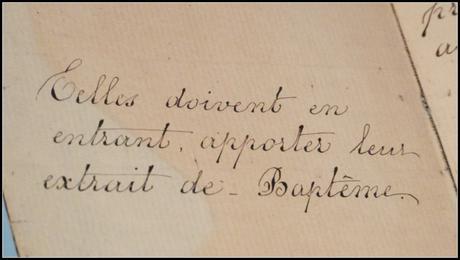 Elles doivent en
entrant, apporter leur
extrait de - Baptême.